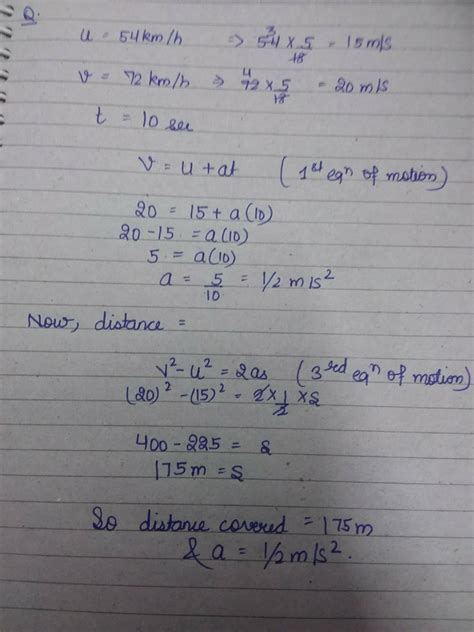 Q.
u = 54 km/h ⇒ 54 × 5/18 3 = 15 m/s
v = 72 km/h ⇒ 72 × 5/18 4 = 20 m/s
t = 10 sec
v = u + at (1st eqn of motion)
20 = 15 + a(10)
20 - 15 = a(10)
5 = a(10)
a = 5/10 = 1/2 m/s²
Now, distance =
v² - u² = 2as (3red eqn of motion)
(20)² - (15)² = 2 × 1/2 × s
400 - 225 = s
175 m = s
So distance covered = 175 m
& a = 1/2 m/s².